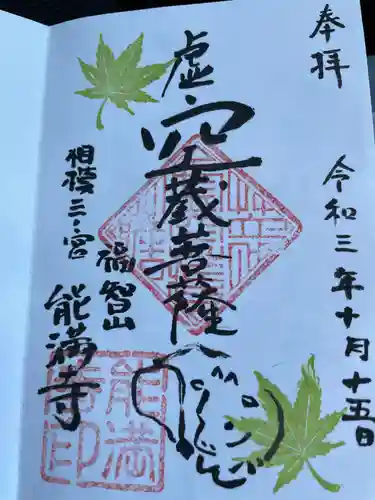 奉拝
令和三年十月十五日
虚空蔵菩薩
相模二宮
福智山
能満寺
能満寺印